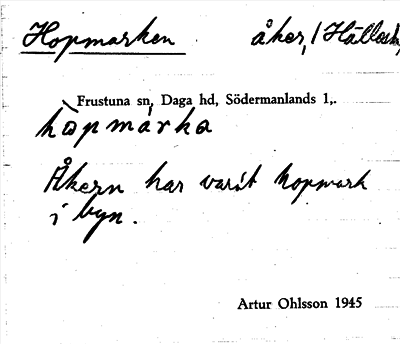 Hopmarken åker,
Frustuna sn, Daga hd, Södermanlands l,.
hòpmárka
Åkern har varit hopmark
i byn.
Artur Ohlsson 1945